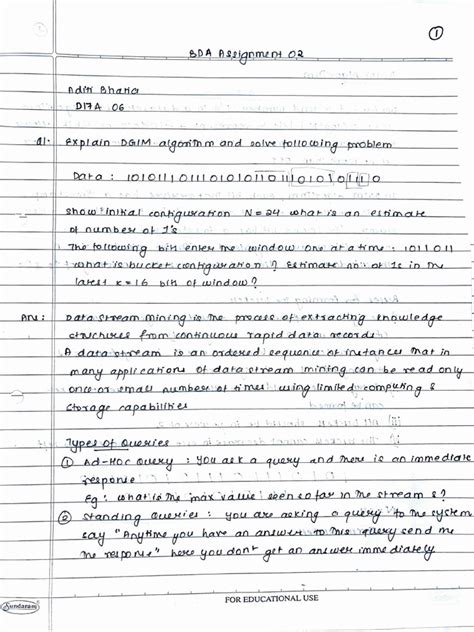 ①
BDA Assignment 02
Aditi Bhatia
D17A 06
Q1. Explain DGIM algorithm and solve following problem
Data :
Show initial configuration N=24 what is an estimate
of number of 1's
The following bits enter the window one at a time : 1011011
what is bucket configuration? Estimate no of 1s in the
latest k=16 bits of window?
Ans: Data stream mining is the process of extracting knowledge
structures from continuous rapid data records
A data stream is an ordered sequence of instances that in
many applications of data stream mining can be read only
once or small number of times using limited computing &
storage capabilities
Types of Queries
① Ad-Hoc Query : You ask a query and there is an immediate
response
Eg : what is the max value seen so far in the stream s?
② Standing Queries : You are asking a query to the system
say "Anytime you have an answer to this query send me
the response" here you don't get an answer immediately
Sundaram
FOR EDUCATIONAL USE